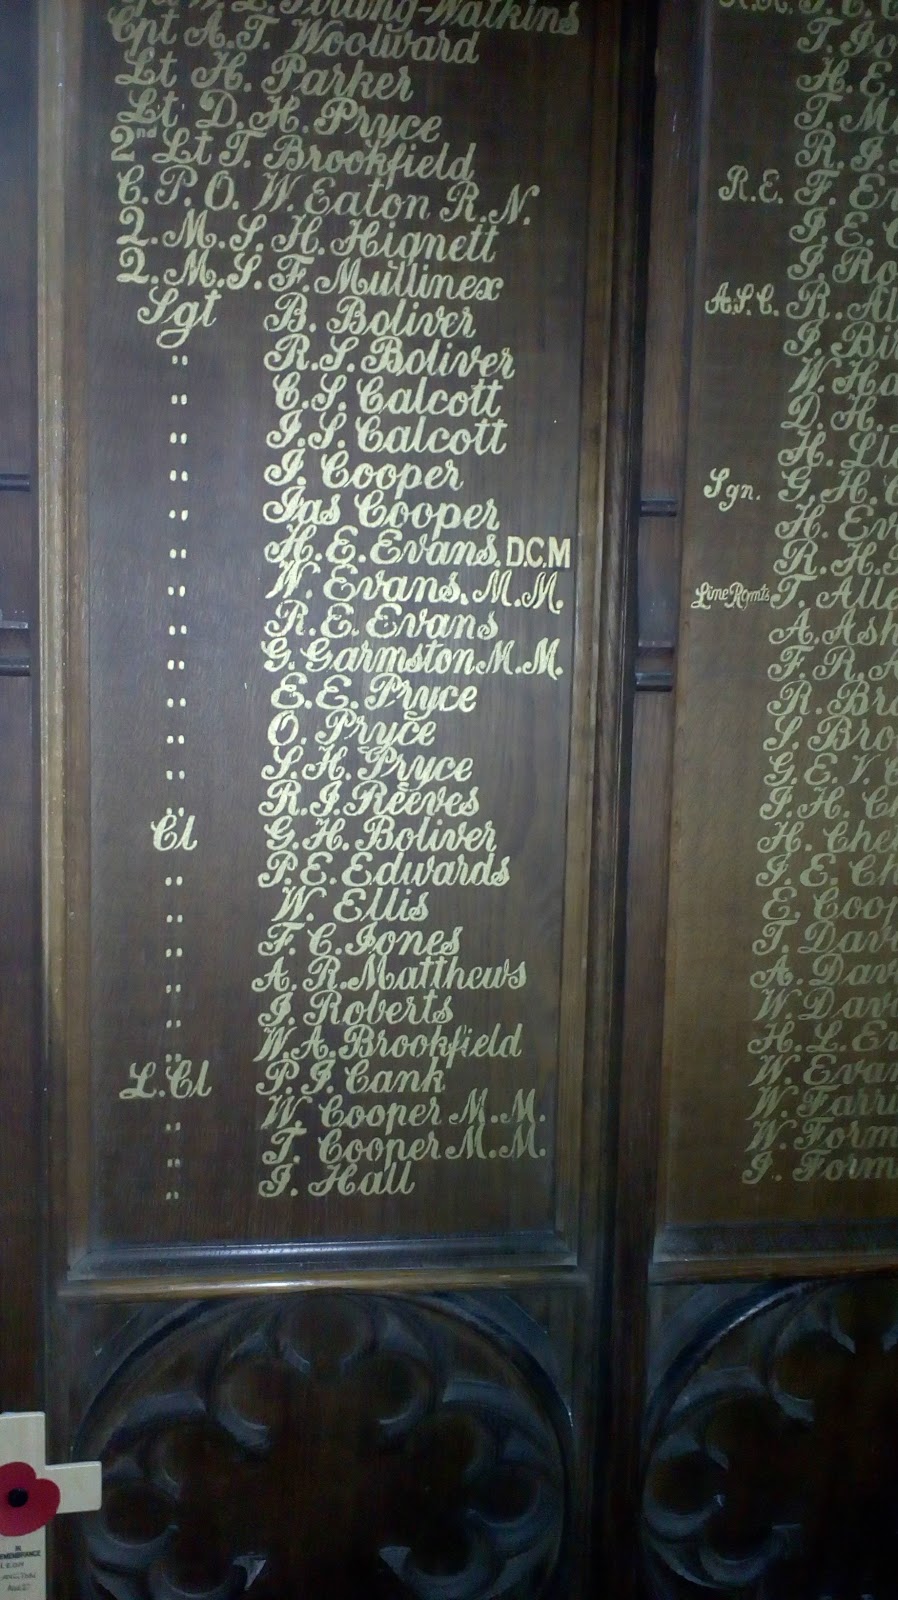 Cpt W. E. Stirling-Watkins
Cpt A. T. Woolward
Lt H. Parker
Lt D. H. Pryce
2nd Lt T. Brookfield
C. P. O. W. Eaton R. N.
Q. M. S. H. Hignett
Q. M. S. F. Mullinex
Sgt B. Boliver
" R. S. Boliver
" C. S. Calcott
" J. S. Calcott
" J. Cooper
" Jas Cooper
" H. E. Evans, D.C.M
" W. Evans, M.M.
" R. E. Evans
" G. Garmston M.M.
" E. E. Pryce
" O. Pryce
" S. H. Pryce
" R. J. Reeves
Cl G. H. Boliver
" P. E. Edwards
" W. Ellis
" F. C. Jones
" A. R. Matthews
" J. Roberts
" W. A. Brookfield
L. Cl P. J. Cank
" W. Cooper M.M.
" T. Cooper M.M.
" J. Hall
T. Jo
H. E.
T. Ma
R. J.
R. E. F. Ev
J. E. C
J. Ro
A. S. C. R. All
J. Bi
W. Ha
D. H.
H. Ll
Sgn. G. H. C
H. Ev
R. H.
Line Rgmts T. Alle
A. Ash
F. R. A
R. Bro
S. Bro
G. E. V. C
J. H. Ch
H. Che
J. E. Ch
E. Coop
T. Davi
A. Dav
W. Dav
H. L. Ev
W. Evan
W. Farri
W. Form
J. Form
IN
REMEMBRANCE